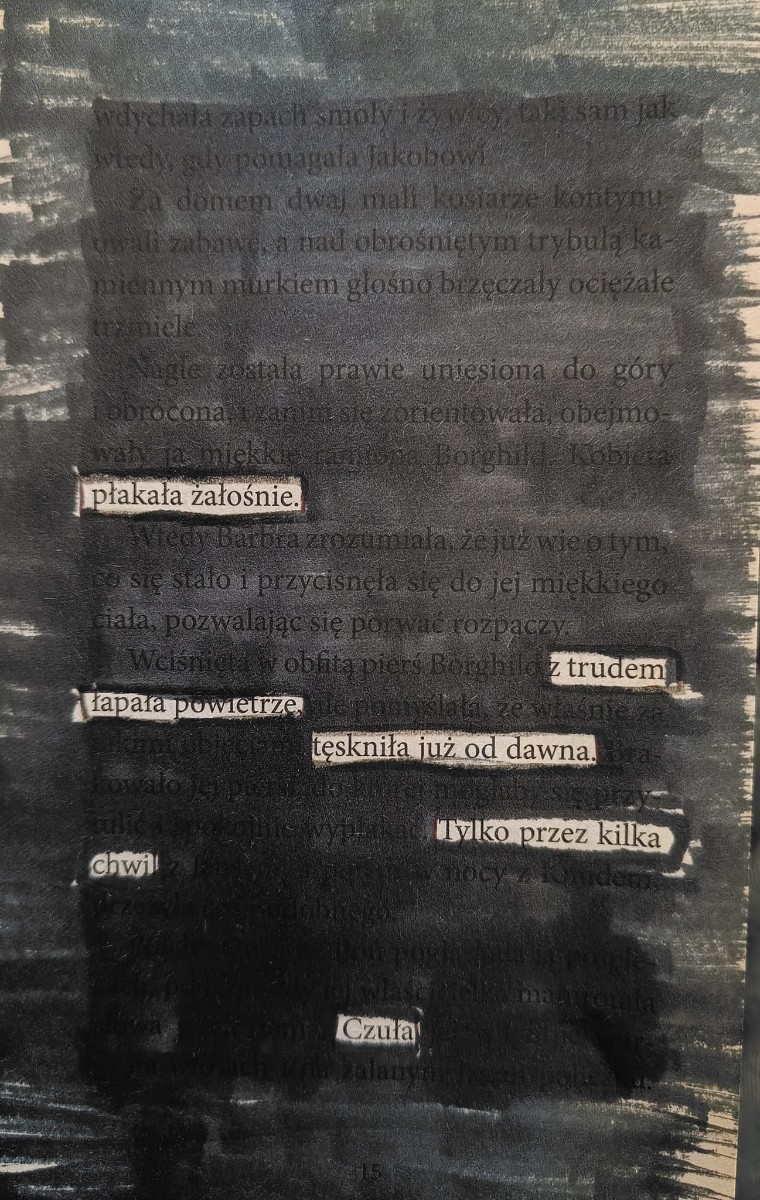 wdychała zapach smoły i żywicy, taki sam jak
wtedy, gdy pomagała Jakobowi.
Za domem dwaj mali kosiarze kontynu-
uwali zabawę, a nad obrośniętym trybulą ka-
miennym murkiem głośno brzęczały ociężałe
trzmiele.
Nagle została prawie uniesiona do góry
i obrócona, i zanim się zorientowała, obejmo-
wały ją miękkie ramiona Borghild. Kobieta
płakała żałośnie.
Wtedy Barbra zrozumiała, że już wie o tym,
co się stało i przycisnęła się do jej miękkiego
ciała, pozwalając się porwać rozpaczy.
Wciśnięta w obfitą pierś Borghild z trudem
łapała powietrze, ale pomyślała, że właśnie za
takimi objęciami tęskniła już od dawna. Bra-
kowało jej piersi, do której mogłaby się przy-
tulić i spokojnie wypłakać. Tylko przez kilka
chwil z nocy z Knudem,
przeżyła coś podobnego.
pogłaskała ją
jej właścicielka mamrotała
słowa Czuła
na włosach i na zalanym łzami policzku.
15